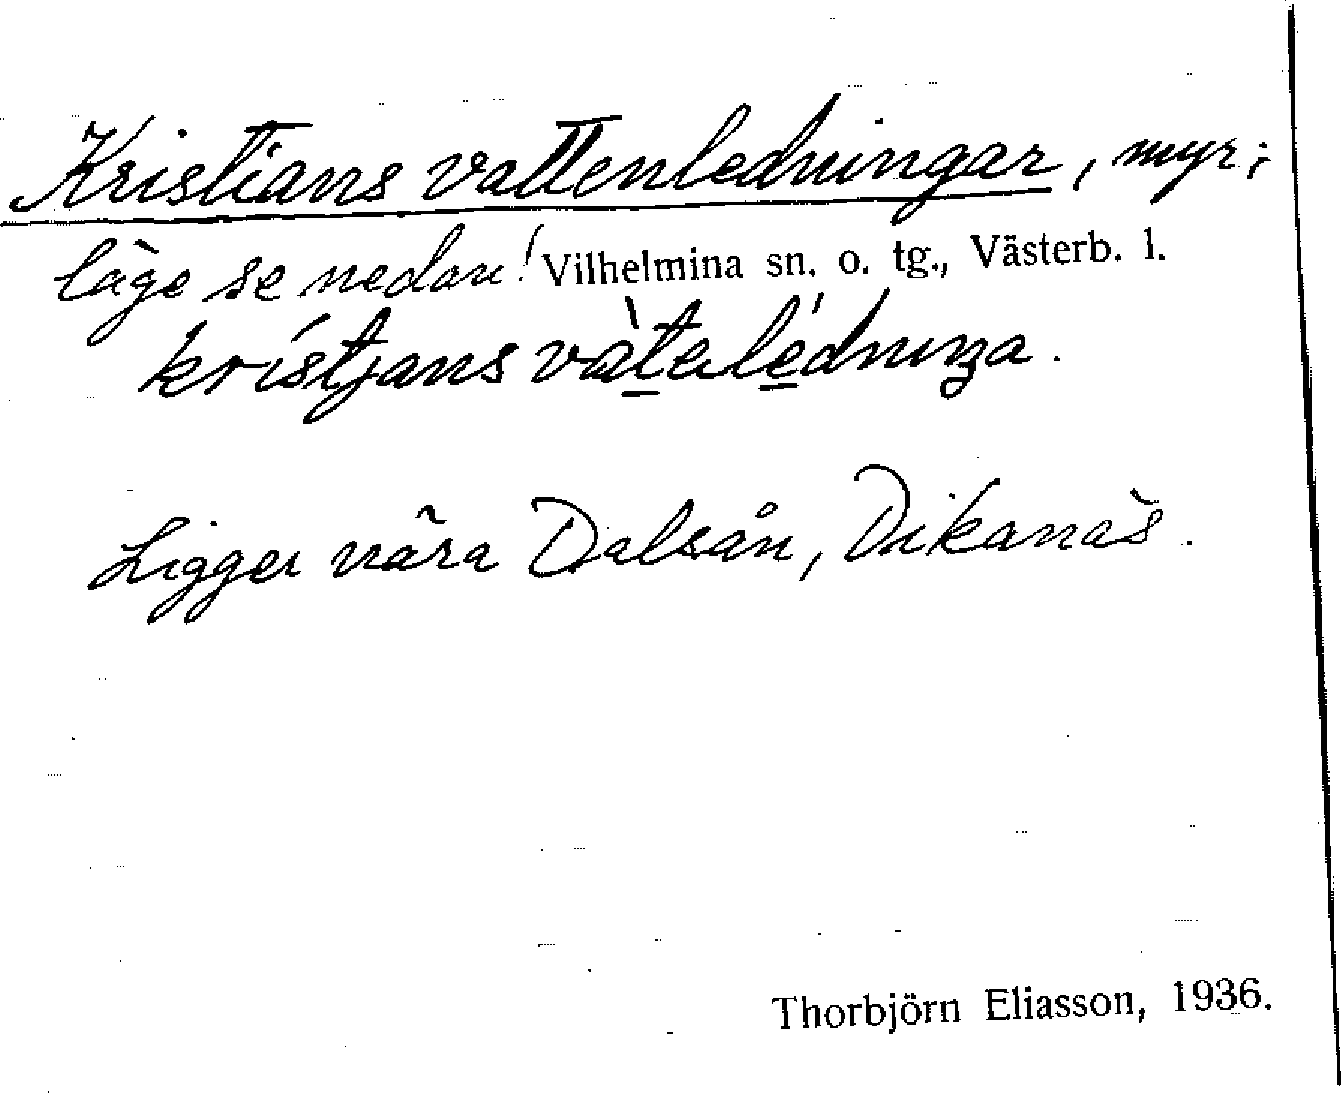 Kristians vattenledningar, myr;
läge se nedan! Vilhelmina sn. o. tg., Västerb. l.
kristjans
Ligger nära Dalsån, Dikanäs.
Thorbjörn Eliasson, 1936.